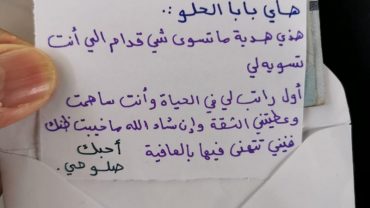 هاي بابا الحلو :.
هذي هدية ما تسوى شي قدام الي أنت
تسويه لي
أول راتب لي في الحياة وأنت ساهمت
وعطيتني الثقة وإن شاء الله ما خيبت ظنك
فيني تتهنى فيها بالعافية
أحبك